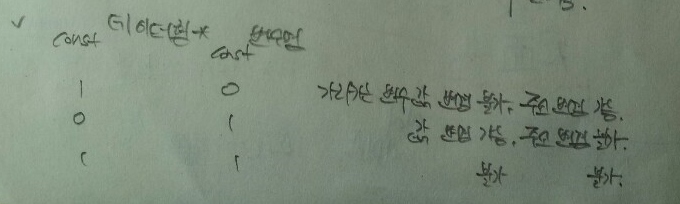 v const 데이터형* const 변수명
1 0 가리키는 변수 값 변경 불가, 주소 변경 가능.
0 1 값 변경 가능, 주소 변경 불가.
1 1 불가 불가.